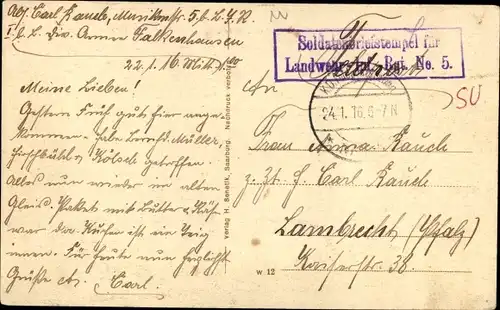 Abs. Carl Rauch, Musketier 5. b. L. J. R.
1. b. L. Div. Armee Falkenhausen
22.1.16 Mittg.
Meine Lieben!
Gestern Früh gut hier ange-
kommen. habe Müller,
Hirschbühl & Kölsch getroffen.
Alles nun wieder im alten
Gleis. Paket mit Butter & Käse
war da. Kuchen ist ein
innen. Für heute nun herzlichst
Grüße Carl.
Verlag H. Benetik, Saarburg. Nachdruck verboten
Soldatenbriefstempel für
Landwehr Inf. Rgt. No. 5.
Feldpost
24.1.16. 6-7 N
SU
An
Frau Anna Rauch
z. Zt. J. Carl Rauch
Lambrecht (Pfalz)
Kaiserstr. 38.
W 12